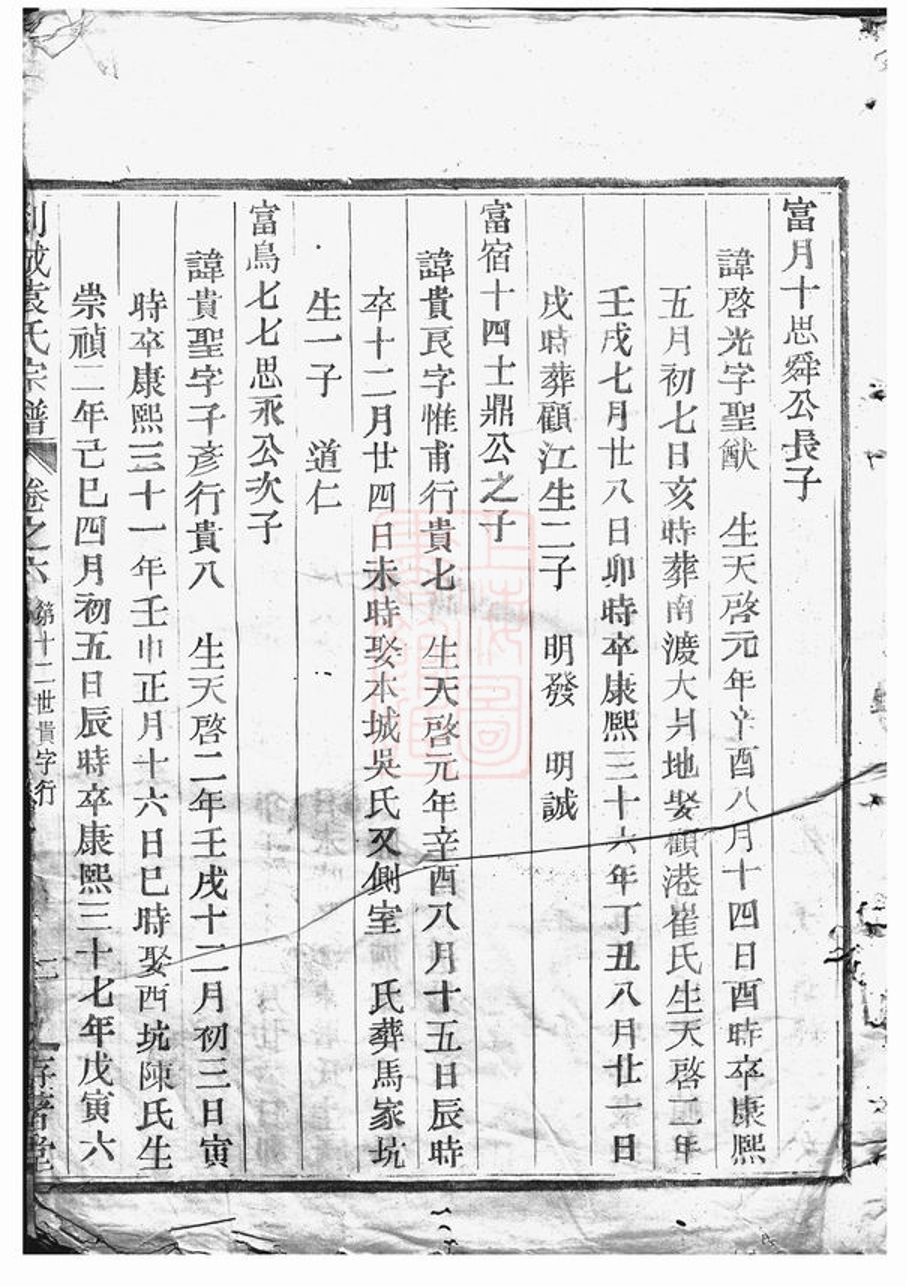 富月十思舜公長子
諱啓光字聖猷　生天啓元年辛酉八月十四日酉時卒康熙
五月初七日亥時葬南渡大爿地娶顧港崔氏生天啓二年
壬戌七月廿八日卯時卒康熙三十六年丁丑八月廿一日
戌時葬顧江生二子　明發　明誠
富宿十四士鼎公之子
諱貴良字惟甫行貴七　生天啓元年辛酉八月十五日辰時
卒十二月廿四日未時娶本城吳氏又側室　氏葬馬家坑
生一子　道仁
富鳥七七思永公次子
諱貴聖字子彥行貴八　生天啓二年壬戌十二月初三日寅
時卒康熙三十一年壬申正月十六日巳時娶西坑陳氏生
崇禎二年己巳四月初五日辰時卒康熙三十七年戊寅六
袁氏宗譜　卷之六　第十二世貴字行
上海圖書館藏